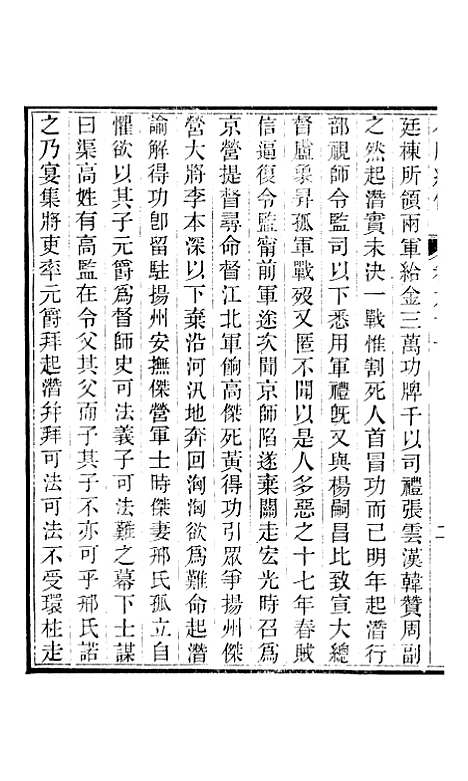 廷棟所領兩軍給金三萬功牌千以司禮張雲漢韓贊周副
之然起潛實未決一戰惟割死人首冒功而已明年起潛行
部視師令監司以下悉用軍禮旣又與楊嗣昌比致宣大總
督盧象昇孤軍戰歿又匿不聞以是人多惡之十七年春賊
信逼復令監甯前軍途次聞京師陷遂棄關走宏光時召爲
京營提督尋命督江北軍偷高傑死黃得功引眾爭揚州傑
營大將李本深以下棄沿河汛地奔回洶洶欲爲難命起潛
諭解得功卽留駐揚州安撫傑營軍士時傑妻邢氏孤立自
懼欲以其子元爵爲督師史可法義子可法難之幕下士謀
曰渠高姓有高監在令父其父而子其子不亦可乎邢氏諾
之乃宴集將吏率元爵拜起潛幷拜可法可法不受環柱走
二